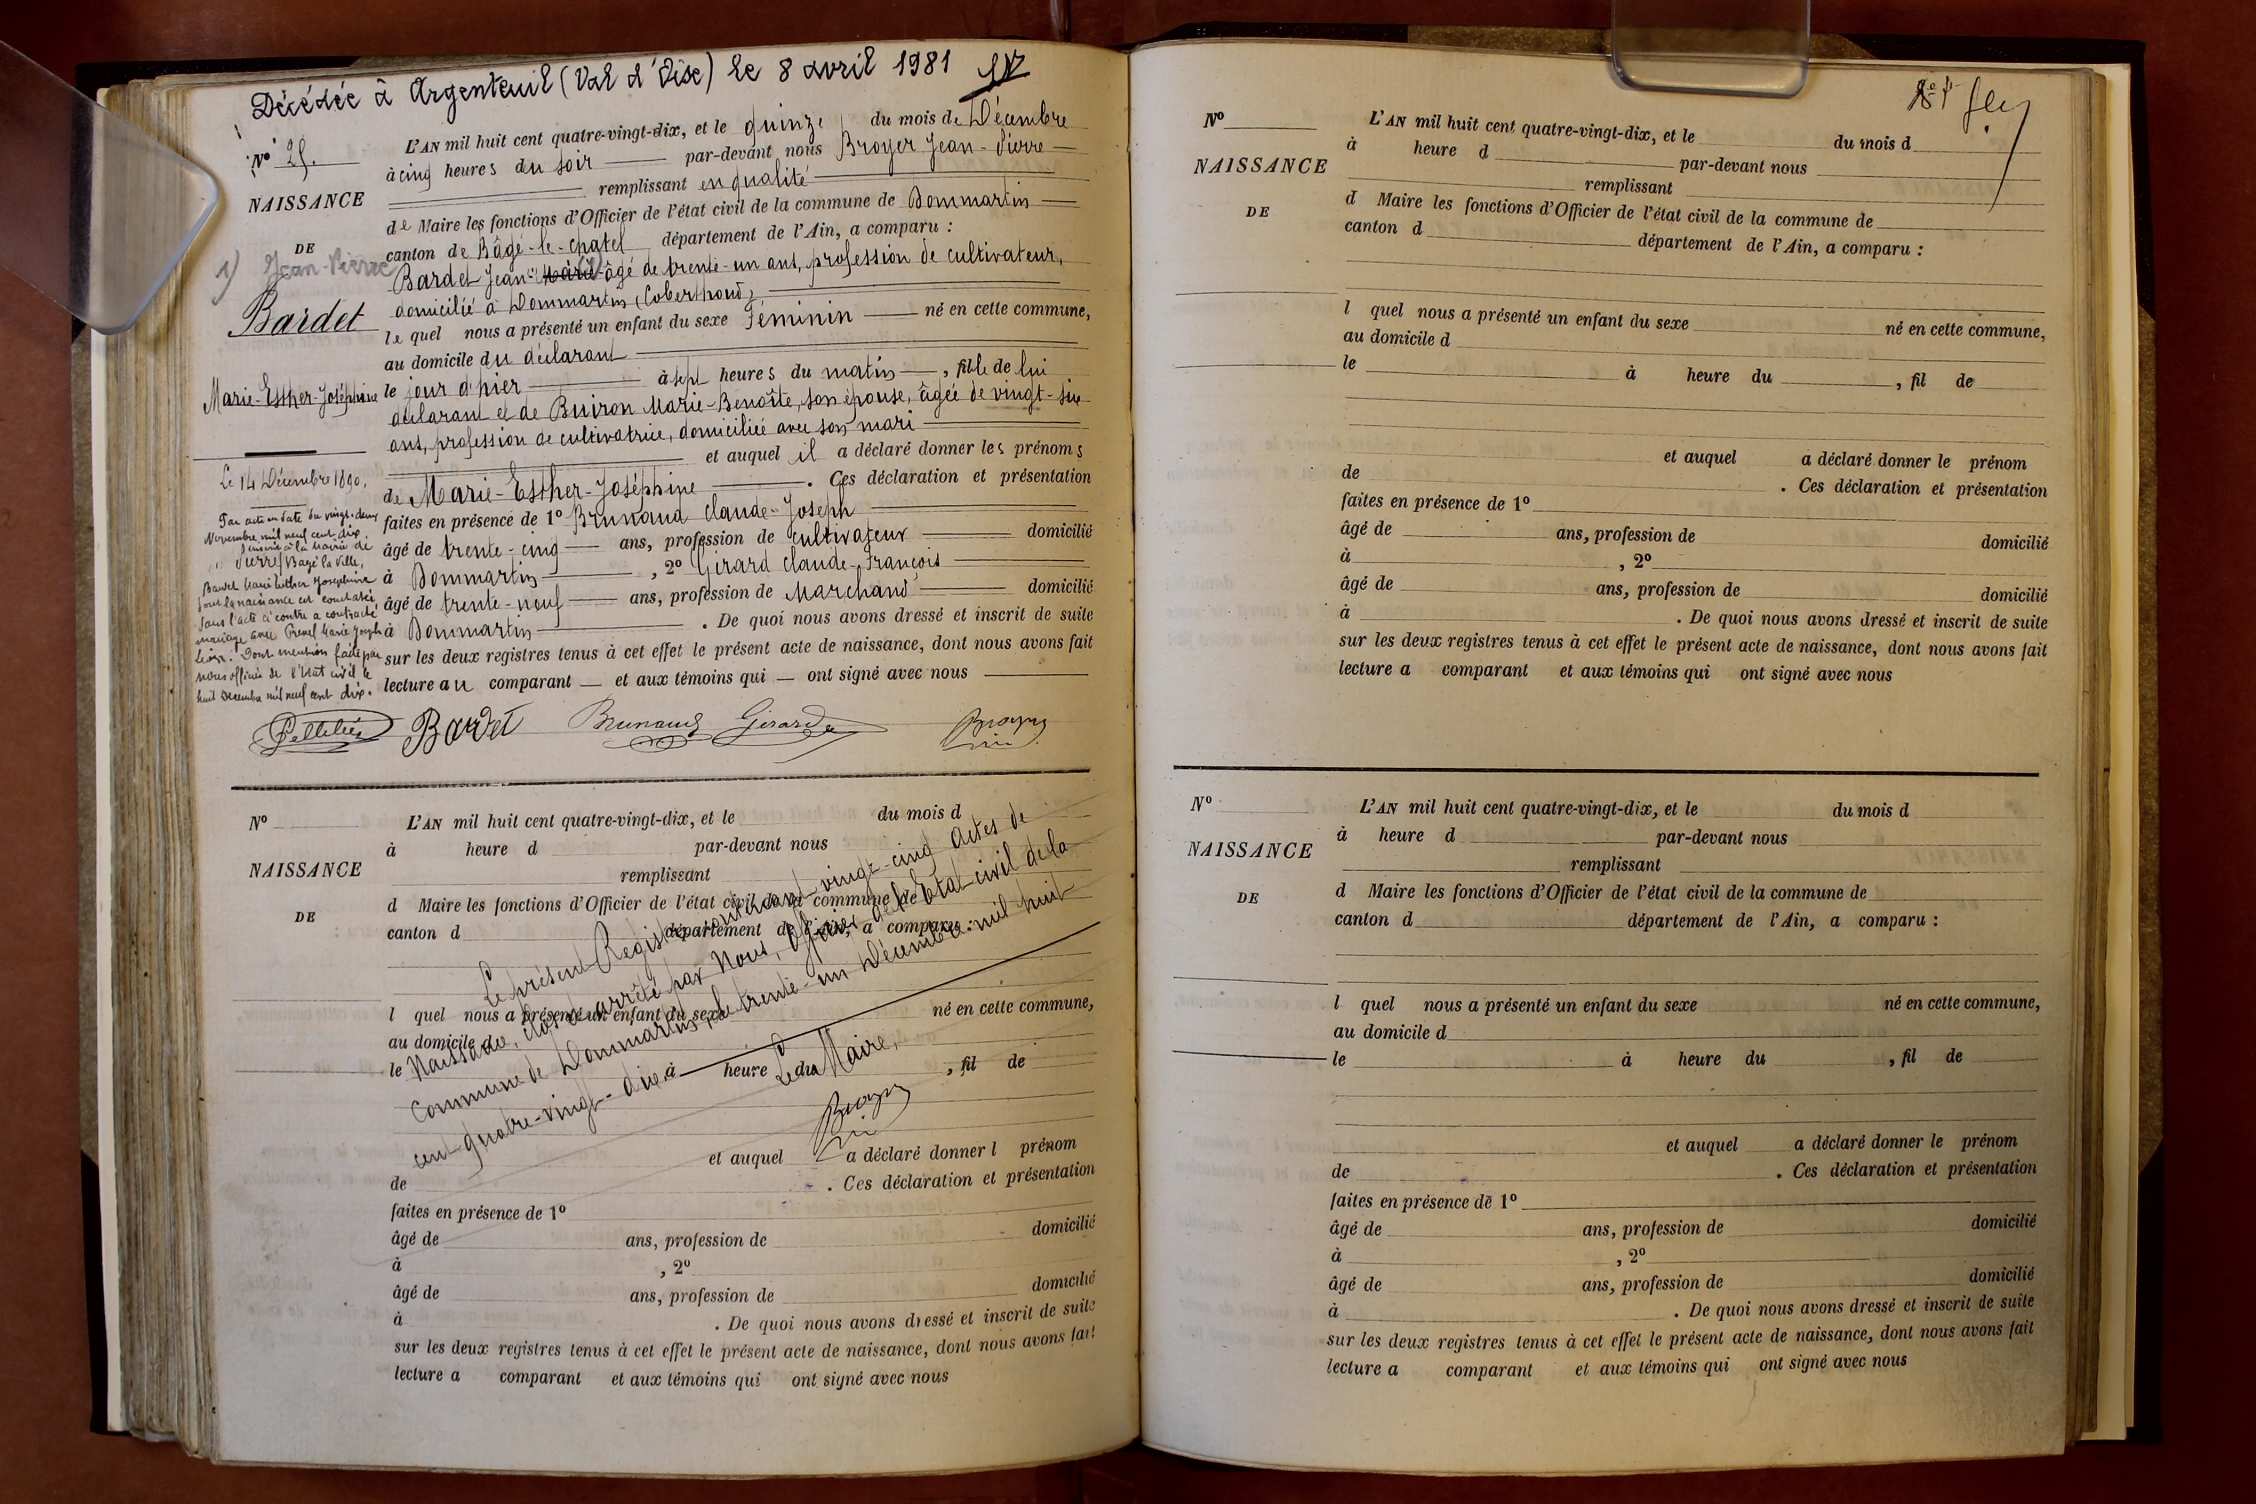 Décédée à Argenteuil (Val d'Oise) le 8 avril 1981
N° 25.
NAISSANCE
DE
1) Jean-Pierre
Bardet
Marie-Esther-Joséphine
Le 14 Décembre 1890.
Par acte en date du vingt-deux
Novembre mil neuf cent dix,
inscrit à la Mairie de
Bagé la Ville,
Bardet Marie Esther Joséphine
dont la naissance est constatée
dans l'acte ci contre a contracté
mariage avec Marie Joseph
Léon. Dont mention faite par
nous officier de l'état civil le
huit Décembre mil neuf cent dix.
L'AN mil huit cent quatre-vingt-dix, et le quinze du mois de Décembre
à cinq heures du soir par-devant nous Broyer Jean-Pierre
remplissant en qualité
de Maire les fonctions d'Officier de l'état civil de la commune de Dommartin
canton de Bâgé-le-Chatel département de l'Ain, a comparu :
Bardet Jean-Marie (1) âgé de trente-un ans, profession de cultivateur,
domicilié à Dommartin,
le quel nous a présenté un enfant du sexe Féminin né en cette commune,
au domicile du déclarant
le jour d'hier à sept heures du matin, fille de lui
déclarant et de Buiron Marie-Benoîte, son épouse, âgée de vingt-six
ans, profession de cultivatrice, domiciliée avec son mari
et auquel il a déclaré donner les prénoms
de Marie-Esther-Joséphine. Ces déclaration et présentation
faites en présence de 1° Brunaud Claude-Joseph
âgé de trente-cinq ans, profession de cultivateur domicilié
à Dommartin, 2° Girard Claude-François
âgé de trente-neuf ans, profession de Marchand domicilié
à Dommartin. De quoi nous avons dressé et inscrit de suite
sur les deux registres tenus à cet effet le présent acte de naissance, dont nous avons fait
lecture au comparant et aux témoins qui ont signé avec nous
Pelletier Bardet Brunaud Girard Broyer
N°
NAISSANCE
DE
L'AN mil huit cent quatre-vingt-dix, et le du mois d
à heure d par-devant nous
remplissant
d Maire les fonctions d'Officier de l'état civil de la commune de
canton d département de l'Ain, a comparu :
l quel nous a présenté un enfant du sexe né en cette commune,
au domicile d
le à heure du , fil de
et auquel a déclaré donner l prénom
de . Ces déclaration et présentation
faites en présence de 1°
âgé de ans, profession de domicilié
à , 2°
âgé de ans, profession de domicilié
à . De quoi nous avons dressé et inscrit de suite
sur les deux registres tenus à cet effet le présent acte de naissance, dont nous avons fait
lecture a comparant et aux témoins qui ont signé avec nous
Le présent Registre contenant vingt-cinq actes de
Naissance, clos et arrêté par Nous, Officier de l'Etat-civil de la
Commune de Dommartin, le trente-un Décembre mil huit
cent quatre-vingt-dix.
Le Maire,
Broyer
N°
NAISSANCE
DE
L'AN mil huit cent quatre-vingt-dix, et le du mois d
à heure d par-devant nous
remplissant
d Maire les fonctions d'Officier de l'état civil de la commune de
canton d département de l'Ain, a comparu :
l quel nous a présenté un enfant du sexe né en cette commune,
au domicile d
le à heure du , fil de
et auquel a déclaré donner le prénom
de . Ces déclaration et présentation
faites en présence de 1°
âgé de ans, profession de domicilié
à , 2°
âgé de ans, profession de domicilié
à . De quoi nous avons dressé et inscrit de suite
sur les deux registres tenus à cet effet le présent acte de naissance, dont nous avons fait
lecture a comparant et aux témoins qui ont signé avec nous
N°
NAISSANCE
DE
L'AN mil huit cent quatre-vingt-dix, et le du mois d
à heure d par-devant nous
remplissant
d Maire les fonctions d'Officier de l'état civil de la commune de
canton d département de l'Ain, a comparu :
l quel nous a présenté un enfant du sexe né en cette commune,
au domicile d
le à heure du , fil de
et auquel a déclaré donner le prénom
de . Ces déclaration et présentation
faites en présence de 1°
âgé de ans, profession de domicilié
à , 2°
âgé de ans, profession de domicilié
à . De quoi nous avons dressé et inscrit de suite
sur les deux registres tenus à cet effet le présent acte de naissance, dont nous avons fait
lecture a comparant et aux témoins qui ont signé avec nous